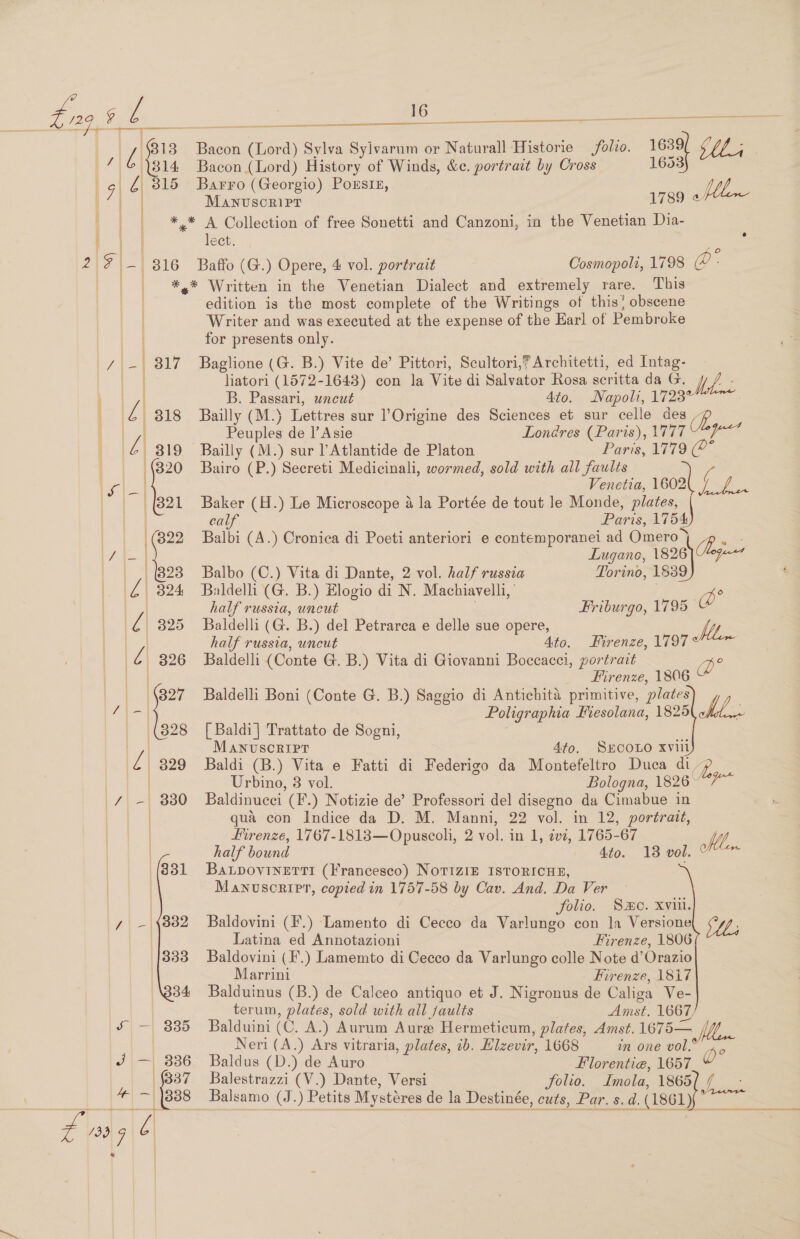 £129 8 6
16
1 6 313 Bacon (Lord) Sylva Sylvarum or Naturall Historie folio. 1639
314 Bacon (Lord) History of Winds, &c. portrait by Cross 1653
9 6 315 Barfo (Georgio) Poesie,
Manuscript 1789 Allen
*** A Collection of free Sonetti and Canzoni, in the Venetian Dia-
lect.
2 8 - 316 Baffo (G.) Opere, 4 vol. portrait Cosmopoli, 1798 Do
*** Written in the Venetian Dialect and extremely rare. This
edition is the most complete of the Writings of this obscene
Writer and was executed at the expense of the Earl of Pembroke
for presents only.
1 - 317 Baglione (G. B.) Vite de' Pittori, Scultori, Architetti, ed Intag-
liatori (1572-1643) con la Vite di Salvator Rosa scritta da G.
B. Passari, uncut 4to. Napoli, 1723
6 318 Bailly (M.) Lettres sur l'Origine des Sciences et sur celle des
Peuples de l'Asie Londres (Paris), 1777
6 319 Bailly (M.) sur l'Atlantide de Platon Paris, 1779 Do
320 Bairo (P.) Secreti Medicinali, wormed, sold with all faults
Venetia, 1602
5 - 321 Baker (H.) Le Microscope à la Portée de tout le Monde, plates,
calf Paris, 1754
322 Balbi (A.) Cronica di Poeti anteriori e contemporanei ad Omero
1 - Lugano, 1826
323 Balbo (C.) Vita di Dante, 2 vol. half russia Torino, 1839
6 324 Baldelli (G. B.) Elogio di N. Machiavelli,
half russia, uncut Friburgo, 1795 Do
6 325 Baldelli (G. B.) del Petrarca e delle sue opere,
half russia, uncut 4to. Firenze, 1797 Allen
6 326 Baldelli (Conte G. B.) Vita di Giovanni Boccacci, portrait
Firenze, 1806 Do
327 Baldelli Boni (Conte G. B.) Saggio di Antichità primitive, plates
1 - Poligraphia Fiesolana, 1825
328 [Baldi] Trattato de Sogni,
Manuscript 4to. Secolo xviii
6 329 Baldi (B.) Vita e Fatti di Federigo da Montefeltro Duca di
Urbino, 3 vol. Bologna, 1826
1 - 330 Baldinucci (F.) Notizie de' Professori del disegno da Cimabue in
quà con Indice da D. M. Manni, 22 vol. in 12, portrait,
Firenze, 1767-1813—Opuscoli, 2 vol. in 1, ivi, 1765-67
half bound 4to. 13 vol. Allen
331 Baldovinetti (Francesco) Notizie istoriche,
Manuscript, copied in 1757-58 by Cav. And. Da Ver
folio. Sæc. xviii.
1 - 332 Baldovini (F.) Lamento di Cecco da Varlungo con la Versione
Latina ed Annotazioni Firenze, 1806
333 Baldovini (F.) Lamemto di Cecco da Varlungo colle Note d'Orazio
Marrini Firenze, 1817
334 Balduinus (B.) de Calceo antiquo et J. Nigronus de Caliga Ve-
terum, plates, sold with all faults Amst. 1667
5 - 335 Balduini (C. A.) Aurum Auræ Hermeticum, plates, Amst. 1675—
Neri (A.) Ars vitraria, plates, ib. Elzevir, 1668 in one vol. Allen
336 Baldus (D.) de Auro Florentiæ, 1657 Do
337 Balestrazzi (V.) Dante, Versi folio. Imola, 1865
4 - 338 Balsamo (J.) Petits Mystères de la Destinée, cuts, Par. s. d. (1861)
£ 133 9 6